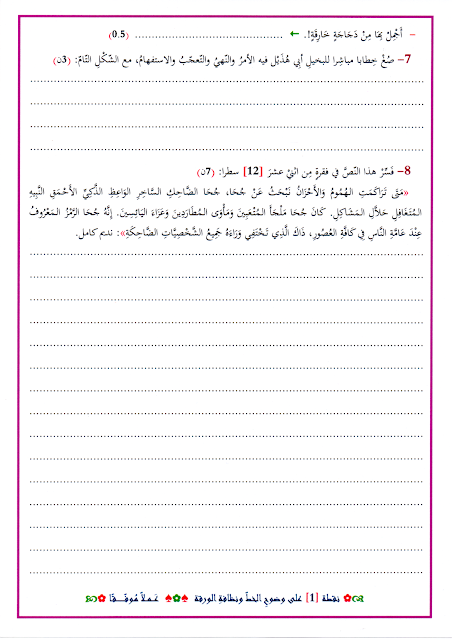 – أَجْمِلْ بِهَا مِنْ دَجَاجَةٍ خَارِقَةٍ!. ← ........................................ (0.5)
7– صُغْ خِطابا مباشِرا للبخيلِ أبي هُذَيْل فيه الأمرُ والنّهيُ والتّعجّبُ والاستفهامُ، مع الشّكْلِ التّامِّ: (3ن)
8– فَسِّرْ هذا النّصَّ في فقرةٍ مِن اثنيْ عشرَ [12] سطرا: (7ن)
«مَتَى تَرَاكَمَتِ الهُمُومُ وَالأَحْزَانُ نَبْحَثُ عَنْ جُحَا، جُحَا الضَّاحِكِ السَّاخِرِ الوَاعِظِ الذَّكِيِّ الأَحْمَقِ النَّبِيهِ
المُتَغَافِلِ حَلَّالِ المَشَاكِلِ. كَانَ جُحَا مَلْجَأَ المُتْعَبِينَ وَمَأْوَى المُطَارَدِينَ وَعَزَاءَ اليَائِسِينَ. إِنَّهُ جُحَا الرَّمْزُ المَعْرُوفُ
عِنْدَ عَامَّةِ النَّاسِ فِي كَافَّةِ العُصُورِ، ذَاكَ الَّذِي تَخْتَفِي وَرَاءَهُ جَمِيعُ الشَّخْصِيَّاتِ الضَّاحِكَةِ»: نديم كامل.
نقطة [1] على وضوح الخطّ ونظافة الورقة عَمـلاً مُوفَّـقـًا